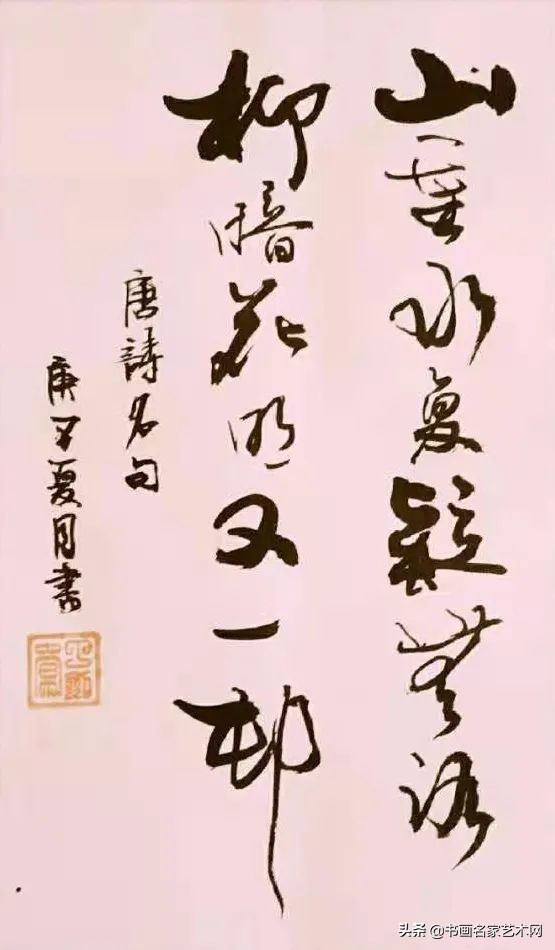 山重水复疑無路
柳暗花明又一邨
唐詩名句
庚子夏月書
头条 @书画名家艺术网